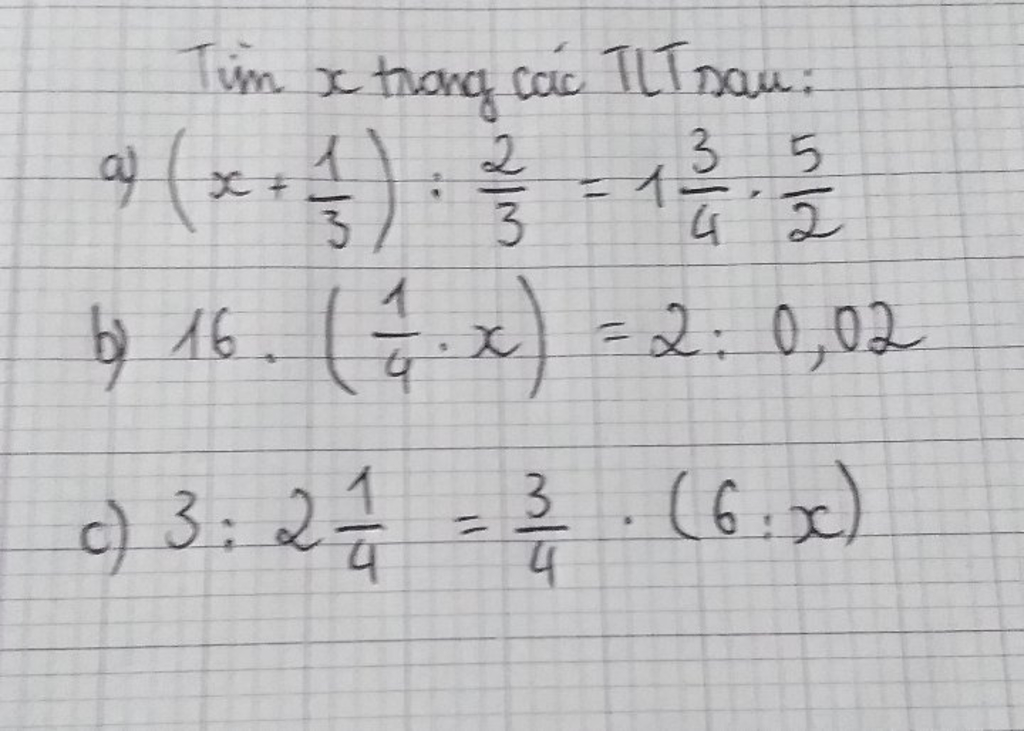 Tìm x trong các TLT sau:
a) (x + 1/3) : 2/3 = 1 3/4 . 5/2
b) 16 . (1/4 . x) = 2 : 0,02
c) 3 : 2 1/4 = 3/4 . (6 : x)